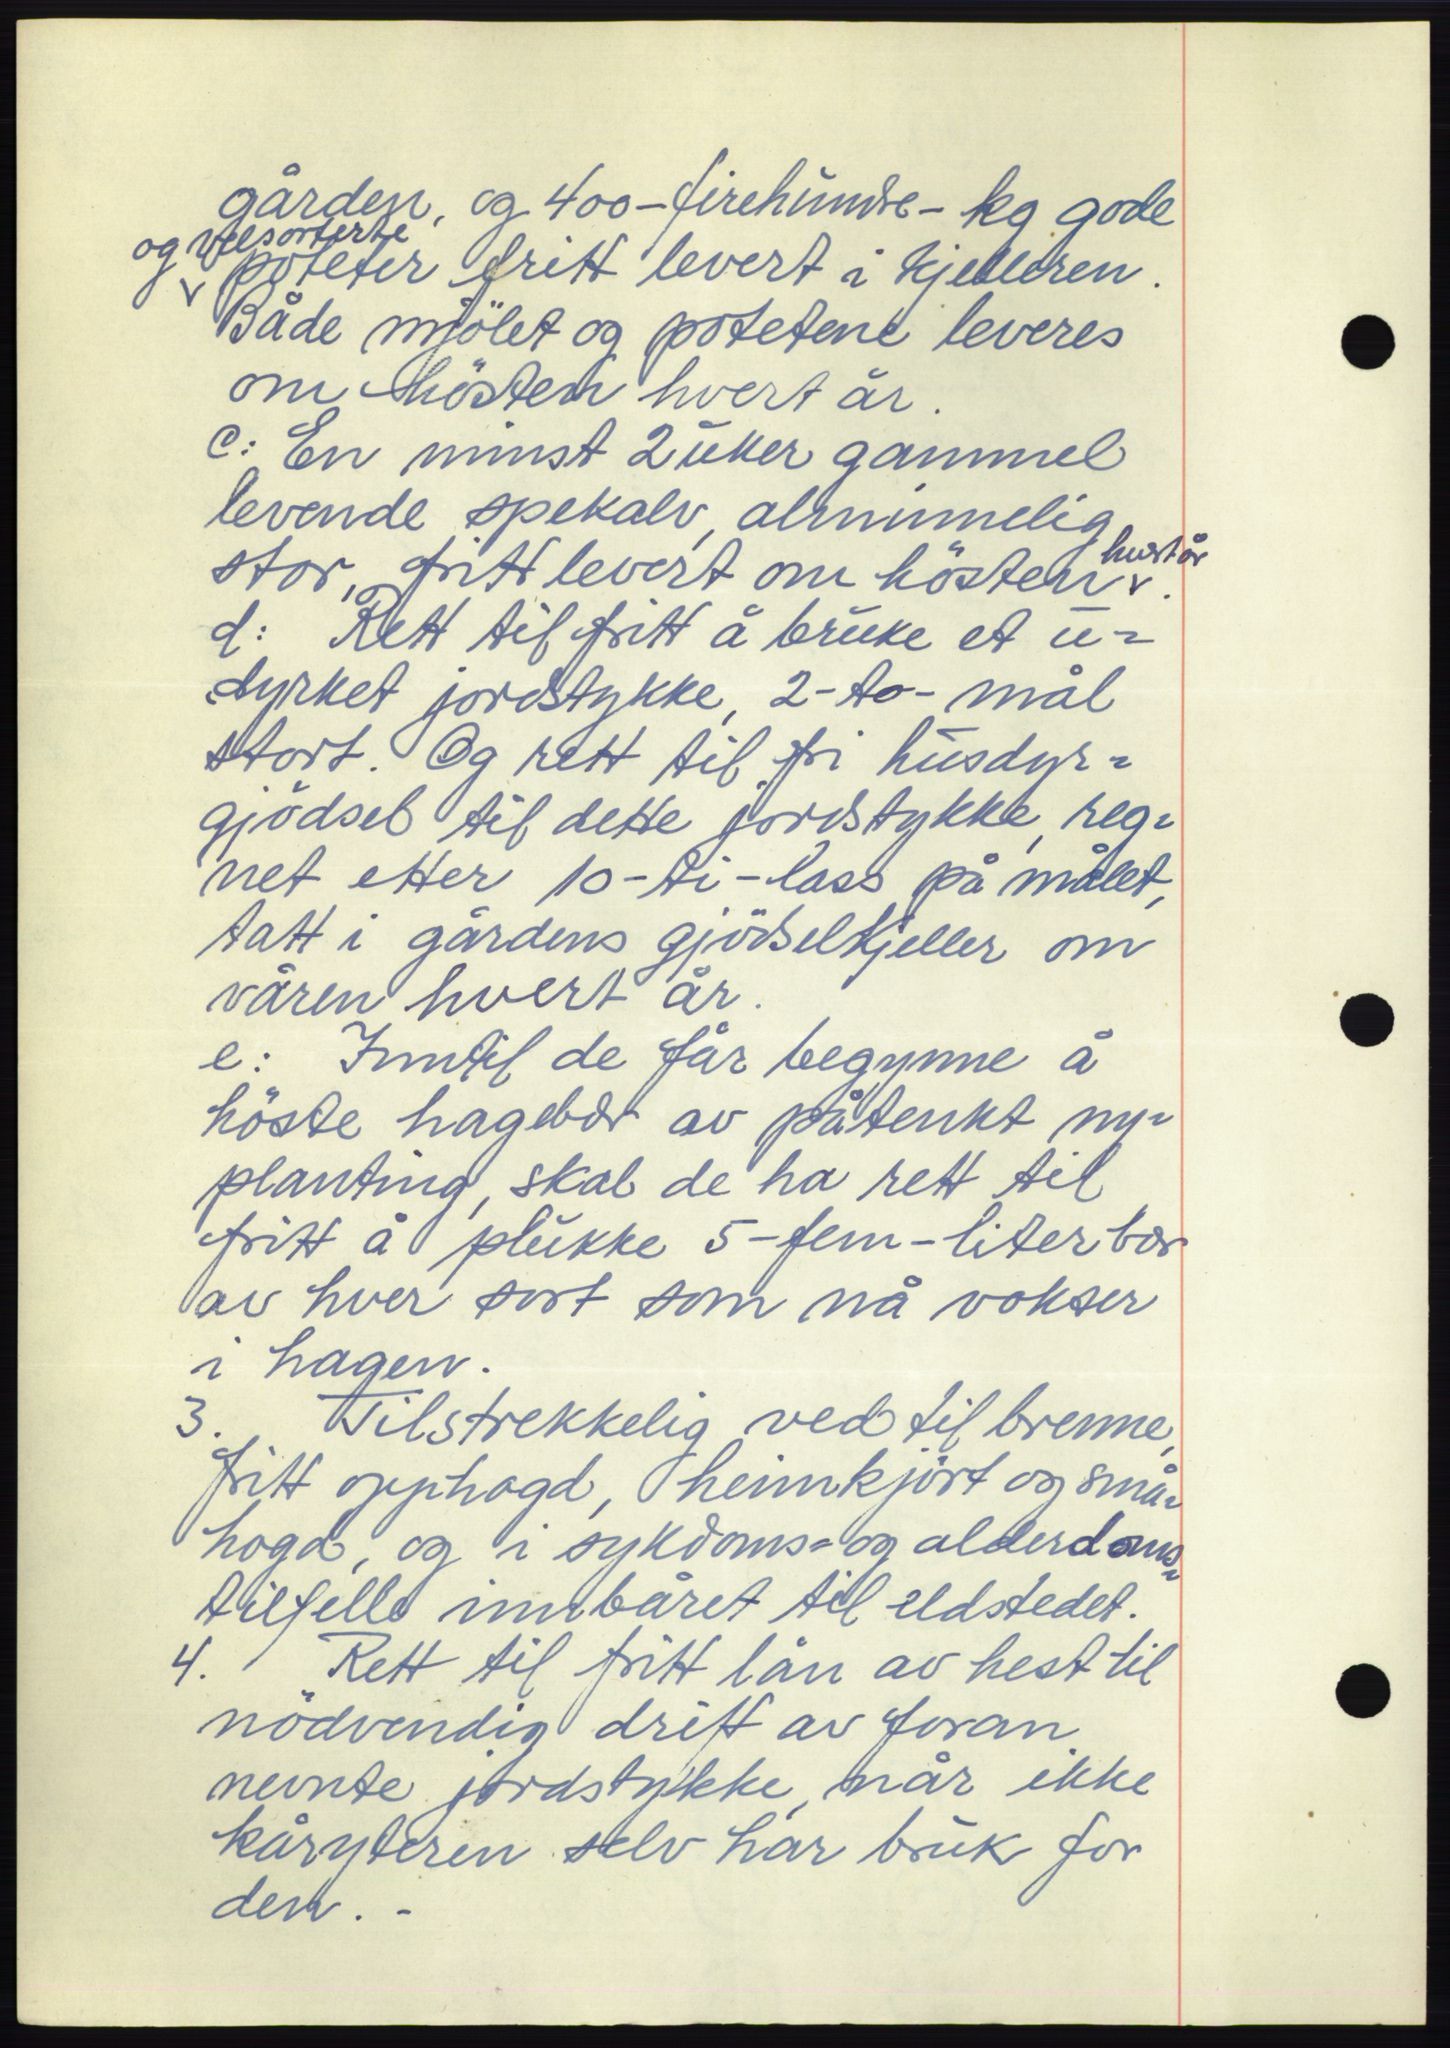 gården, og 400-firehundre- kg gode
og velsorterte
poteter fritt levert i kjelleren.
Både mjölet og potetene leveres
om hösten hvert år.
c: En minst 2 uker gammel
levende spekalv, alminnelig
stor, fritt levert om hösten hvert år.
d: Rett til fritt å bruke et u=
dyrket jordstykke, 2-to- mål
stort. Og rett til fri husdyr=
gjödsel til dette jordstykke, reg=
net etter 10-ti-lass på målet,
tatt i gårdens gjödselkjeller om
våren hvert år.
e: Inntil de får begynne å
höste hagebær av påtenkt ny=
planting, skal de ha rett til
fritt å plukke 5-fem-liter bær
av hver sort som nå vokser
i hagen.
3. Tilstrekkelig ved til brenne,
fritt opphogd, heimkjört og små=
hogd, og i sykdoms= og alderdoms=
tilfelle innbåret til eldstedet.
4. Rett til fritt lån av hest til
nödvendig drift av foran
nevnte jordstykke, når ikke
kåryteren selv har bruk for
den. -